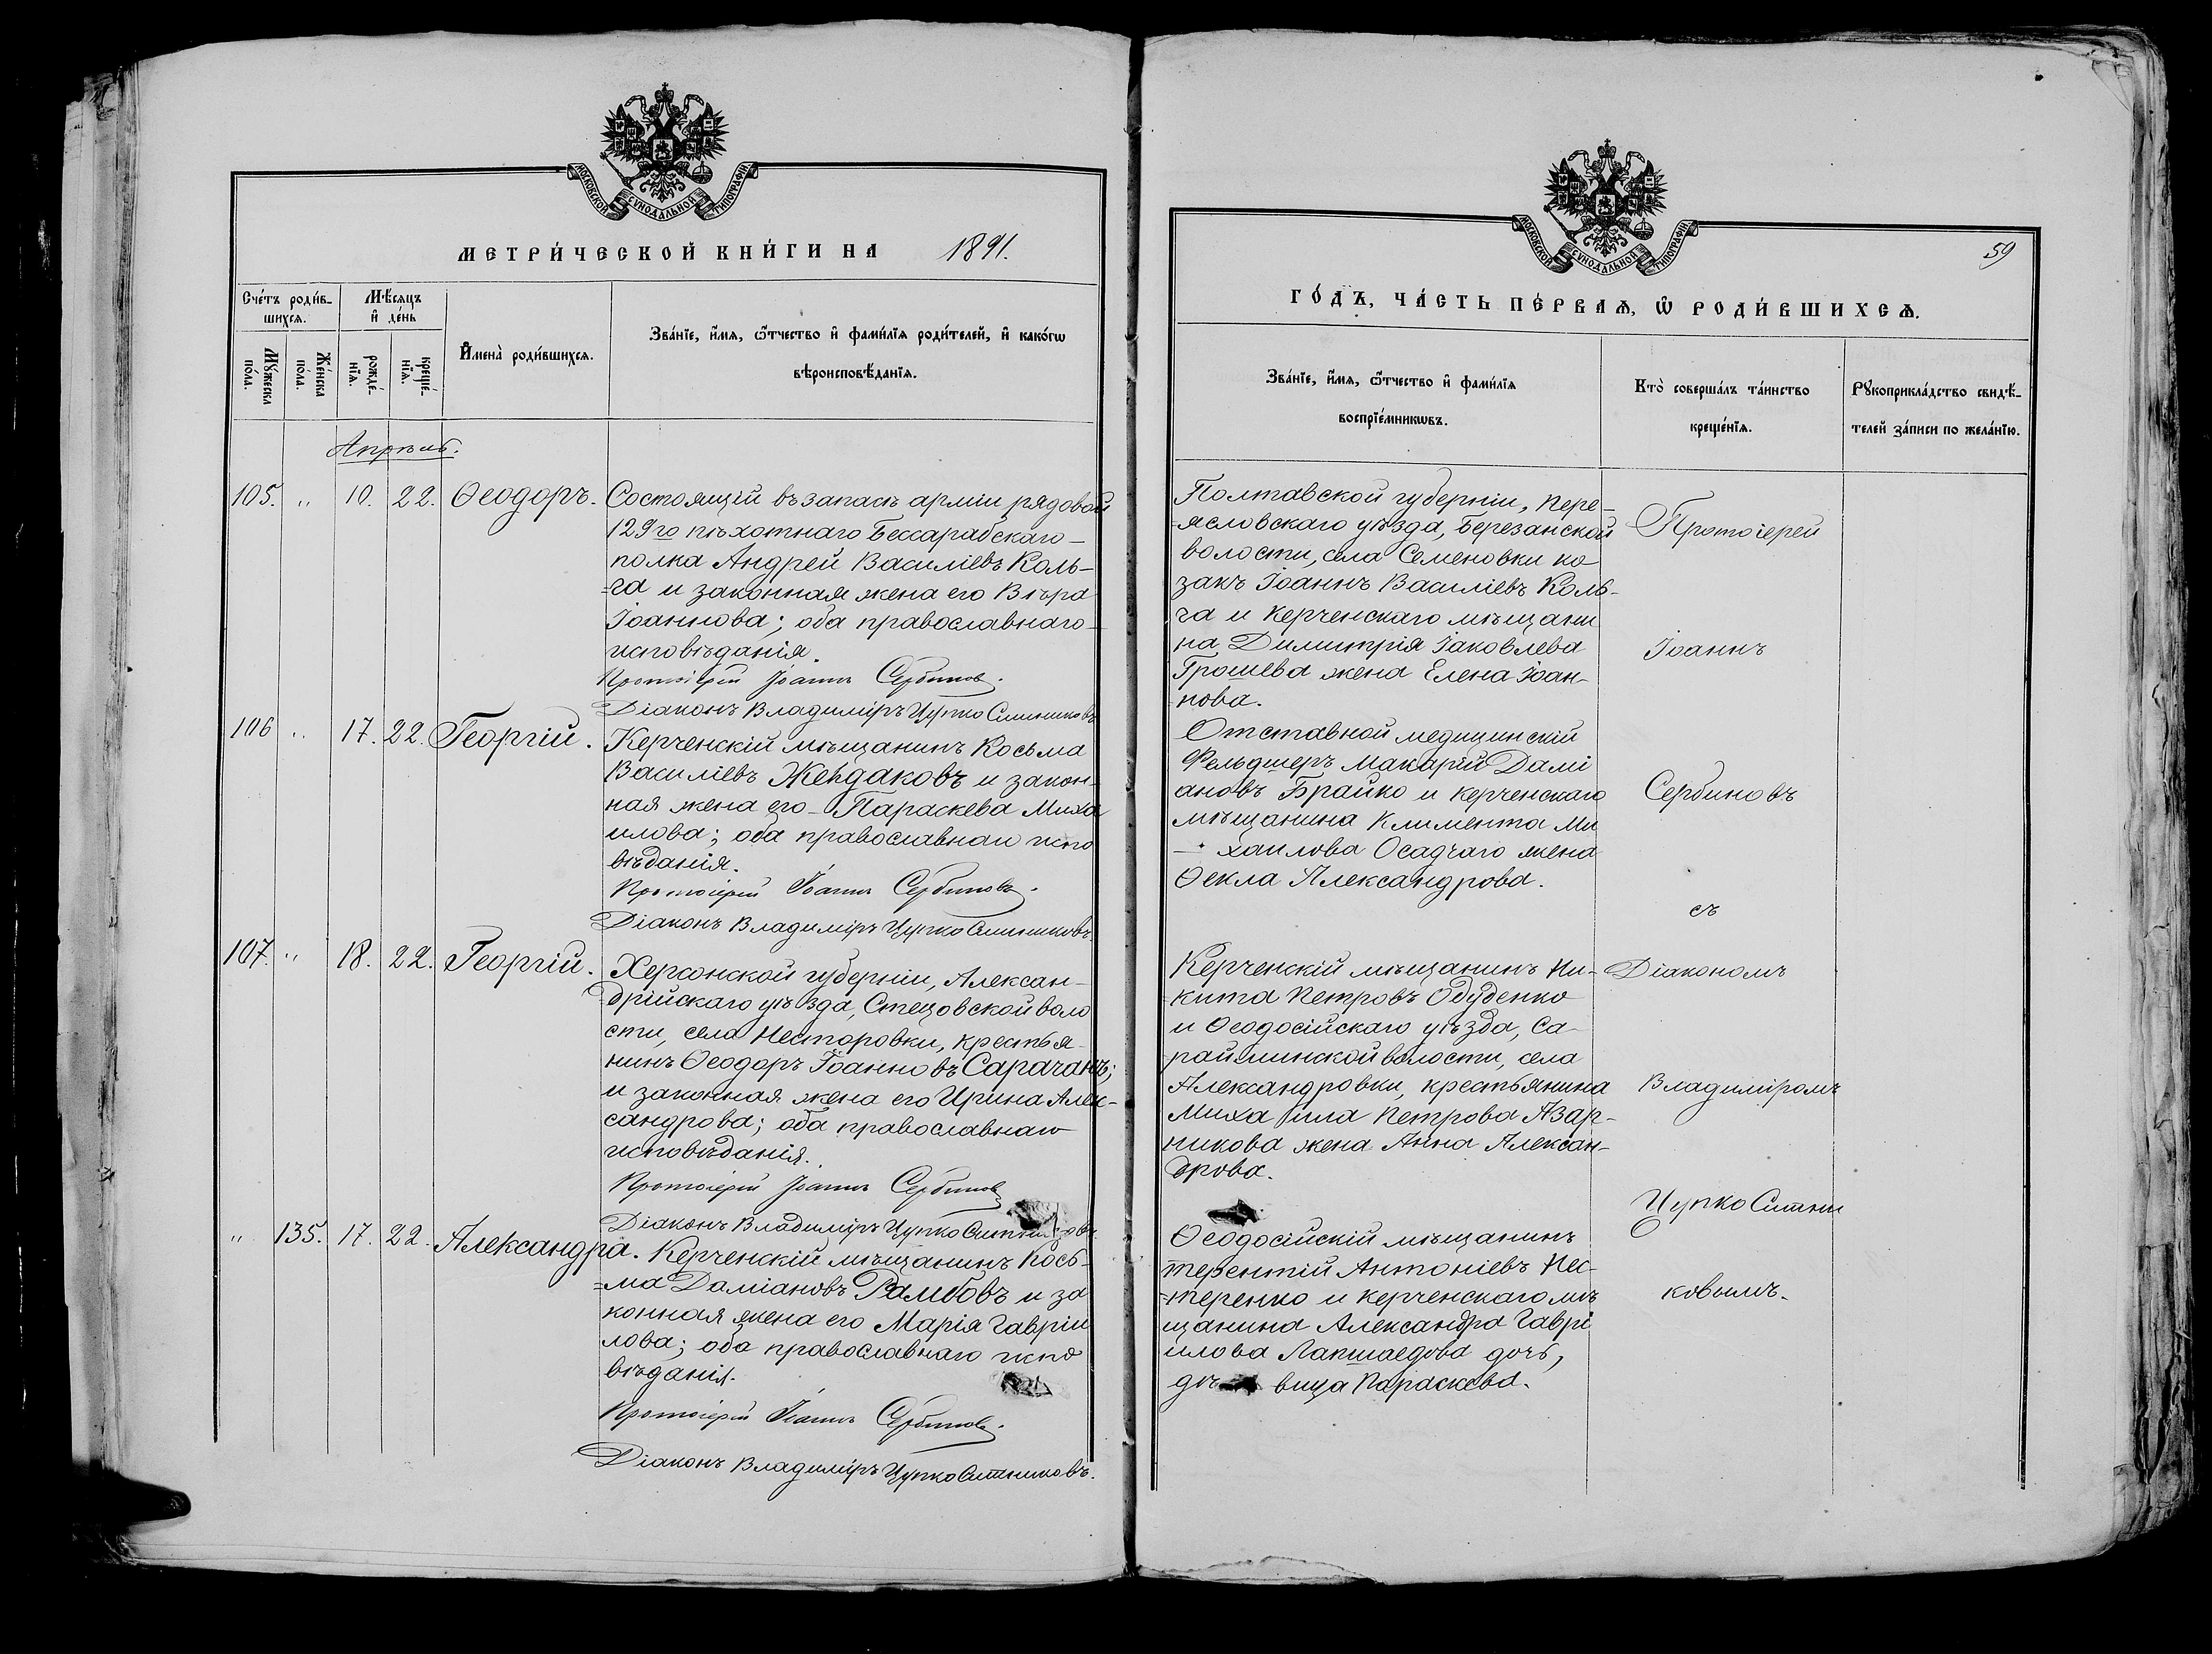 МОСКОВСКОЙ СѴНОДАЛЬНОЙ ТИПОГРАФІИ
МЕТРИ́ЧЕСКОЙ КНИ́ГИ НА 1891.
Сче́тъ роди́в-
шихсѧ.
Мѣ́сѧцъ
и҆ де́нь
Мꙋ́жеска
по́ла.
Же́нска
по́ла.
рожде́-
нїѧ.
креще́-
нїѧ.
И҆мена̀ роди́вшихсѧ.
Зва́нїе, и҆́мѧ, ѻ҆́тчество и҆ фами́лїѧ роди́телей, и҆ како́гѡ
вѣроисповѣ́данїѧ.
Апрѣль.
105. „ 10. 22. Ѳеодоръ. Состоящій въ запасѣ арміи рядовой
129го пѣхотнаго Бессарабскаго
полка Андрей Василіевъ Коль-
=га и законная жена его Вѣра
Іоаннова; оба православнаго
исповѣданія.
Протоіерей Іоаннъ Сербиновъ.
Діаконъ Владиміръ Цупко Ситниковъ
106 „ 17. 22. Георгій. Керченскій мѣщанинъ Косьма
Василіевъ Жендаковъ и закон-
ная жена его Параскева Миха
илова; оба православнаго испо
вѣданія.
Протоіерей Іоаннъ Сербиновъ.
Діаконъ Владиміръ Цупко Ситниковъ.
107. „ 18. 22. Георгій. Херсонской губерніи, Алексан-
=дрійскаго уѣзда, Стецовской воло
сти, села Несторовки, крестья-
нинъ Ѳеодоръ Іоанновъ Сарачанъ;
и законная жена его Ирина Алек-
сандрова; оба православнаго
исповѣданія.
Протоіерей Іоаннъ Сербиновъ
Діаконъ Владиміръ Цупко Ситниковъ
„ 135. 17. 22. Александра. Керченскій мѣщанинъ Кось-
=ма Даміановъ Рамбовъ и за
конная жена его Марія Гавріи
лова; оба православнаго испо
вѣданія.
Протоіерей Іоаннъ Сербиновъ.
Діаконъ Владиміръ Цупко Ситниковъ.
МОСКОВСКОЙ СѴНОДАЛЬНОЙ ТИПОГРАФІИ
59
ГО́ДЪ, ЧА́СТЬ ПЕ́РВАѦ, Ѡ҆ РОДИ́ВШИХСѦ.
Зва́нїе, и҆́мѧ, ѻ҆́тчество и҆ фами́лїѧ
воспрїе́мникѡвъ.
Кто̀ соверша́лъ та́инство
креще́нїѧ.
Рꙋкоприкла́дство свидѣ́-
телей за́писи по жела́нїю.
Полтавской губерніи, Пере-
=ясловскаго уѣзда, Березанской
волости, села Семеновки ко
закъ Іоаннъ Василіевъ Коль-
га и керченскаго мѣщани
на Димитрія Іаковлева
Грошева жена Елена Іоан-
нова.
Отставной медицинскій
Фельдшеръ Макарій Дамі
ановъ Брайко и керченскаго
мѣщанина Климента Ми
хаилова Осадчаго жена
Ѳекла Александрова.
Керченскій мѣщанинъ Ни-
кита Петровъ Обуденко
и Ѳеодосійскаго уѣзда, Са-
райминской волости, села
Александровки, крестьянина
Михаіила Петрова Азар-
никова жена Анна Алексан-
дрова.
Ѳеодосійскій мѣщанинъ
Терентій Антоніевъ Нес-
=теренко и керченскаго мѣ
щанина Александра Гаврі
илова Лапшаедова дочь,
дѣ вица Параскева.
Протоіерей
Іоаннъ
Сербиновъ
съ
Діакономъ
Владиміромъ
Цупко Ситни
ковымъ.